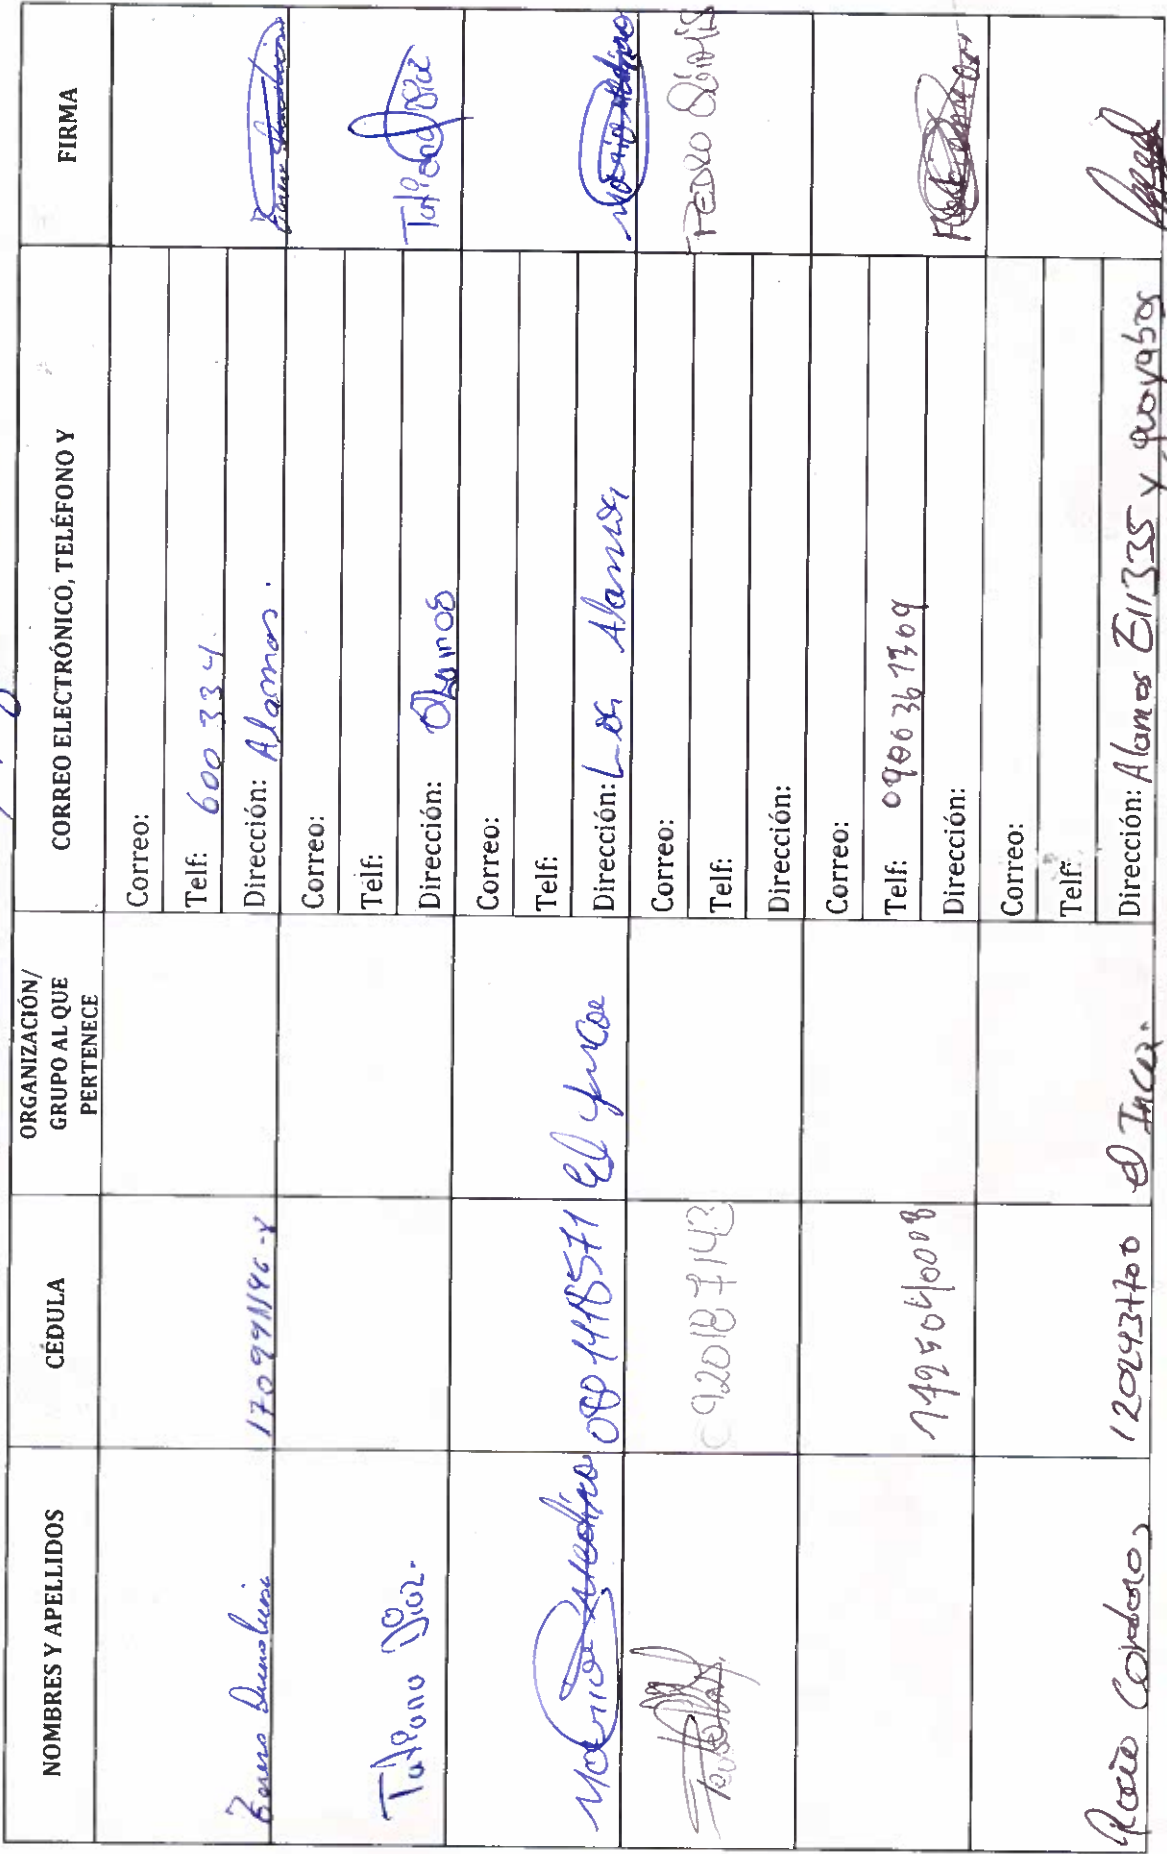 NOMBRES Y APELLIDOS
CÉDULA
ORGANIZACIÓN/
GRUPO AL QUE
PERTENECE
CORREO ELECTRÓNICO, TELÉFONO Y
FIRMA
Correo:
Telf: 600 334
Dirección: Alamos.
Tatiana Díaz.
Correo:
Telf:
Dirección: Alamos
Tatiana Díaz
Maria Medina
0801418571
El Inca
Correo:
Telf:
Dirección: Los Alamos
Maria Medina
0920187143
Correo:
Telf:
Dirección:
PEDRO
1725040008
Correo:
Telf: 0990367369
Dirección:
Rocío Cordova
1202937700
el Inca.
Correo:
Telf:
Dirección: Alamos E11335 y guayabos